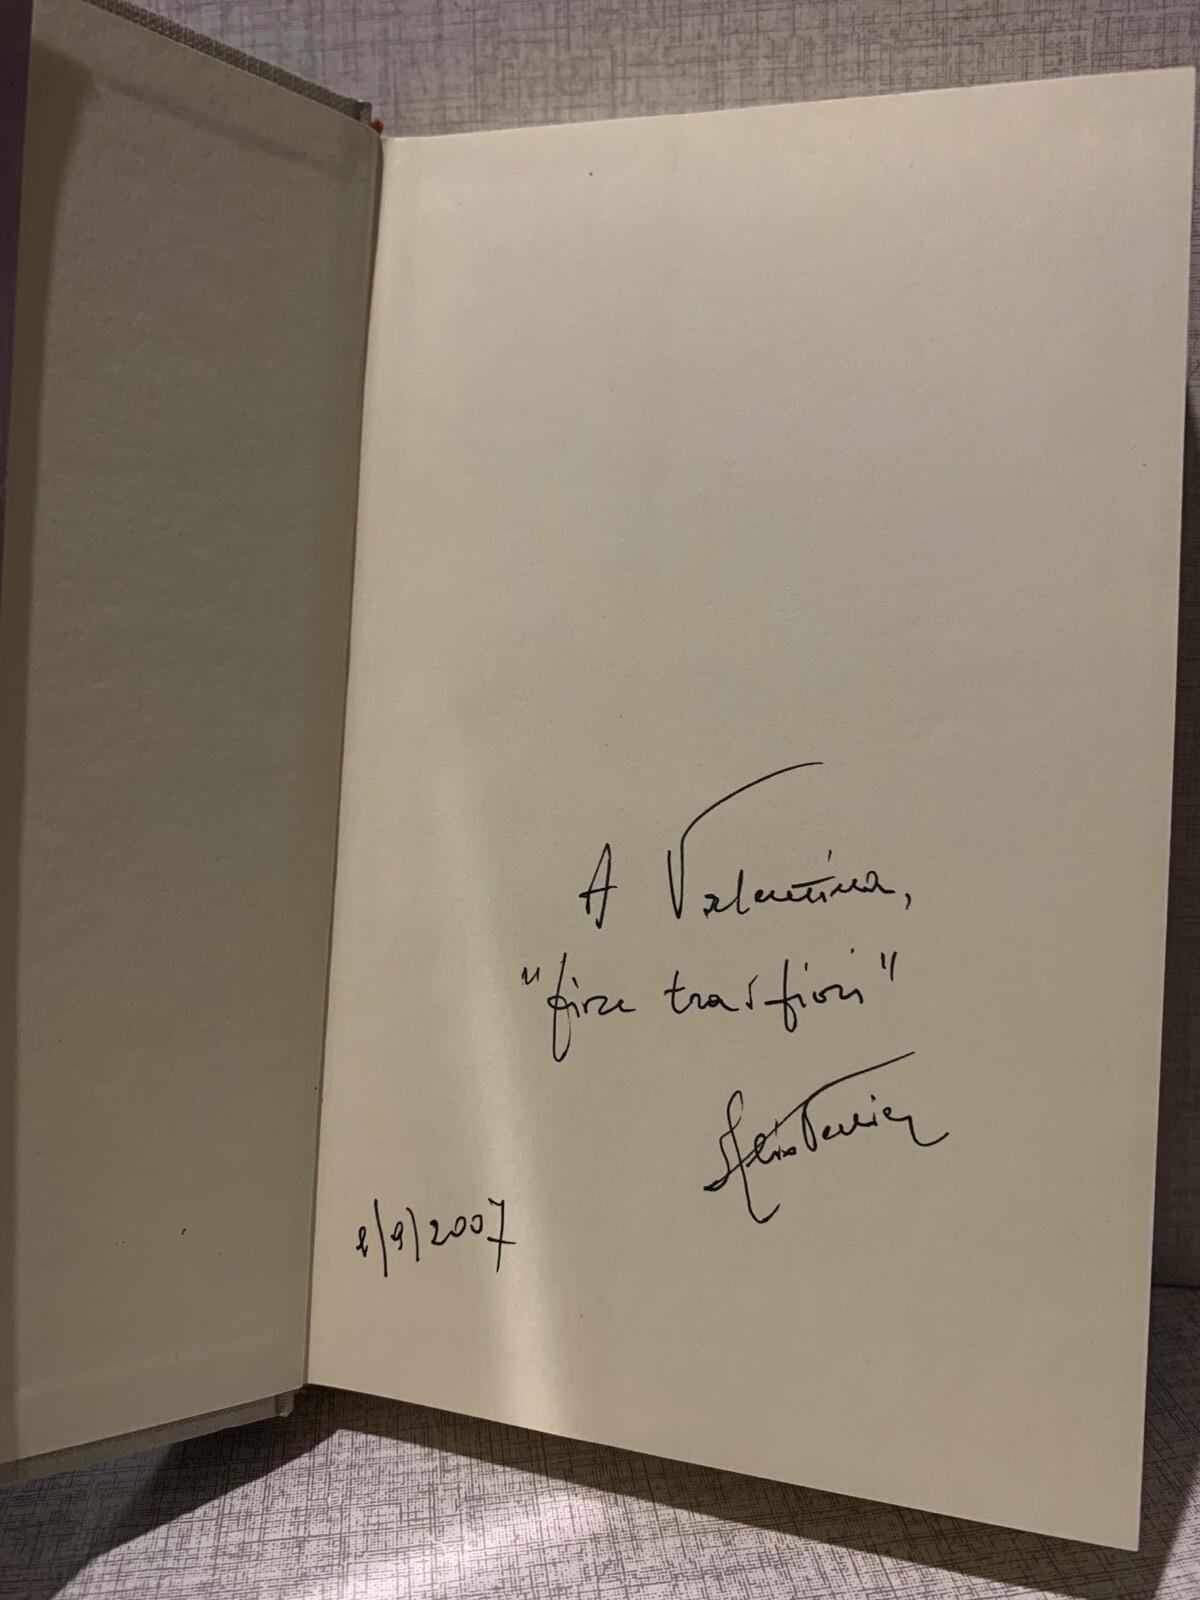 A Valentina,
"fiore tra i fiori"
2/9/2007